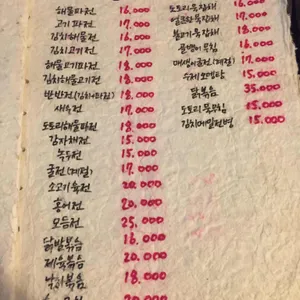 해물파전 16.000
고기파전 17.000
김치해물전 16.000
김치고기전 17.000
해물고기파전 18.000
김치해물고기전 18.000
반반전(김치+파전) 18.000
새우전 17.000
도토리해물파전 18.000
감자채전 15.000
녹두전 15.000
굴전(계절) 17.000
소고기육전 20.000
홍어전 20.000
모듬전 25.000
닭발볶음 16.000
제육볶음 20.000
낙지볶음 18.000
20.000
도토리묵 16.000
17.000
불고기 18.000
골뱅이무침 16.000
매생이굴전(계절) 17.000
수제소면탕 15.000
닭볶음 35.000
도토리묵무침 15.000
김치메밀전병 15.000